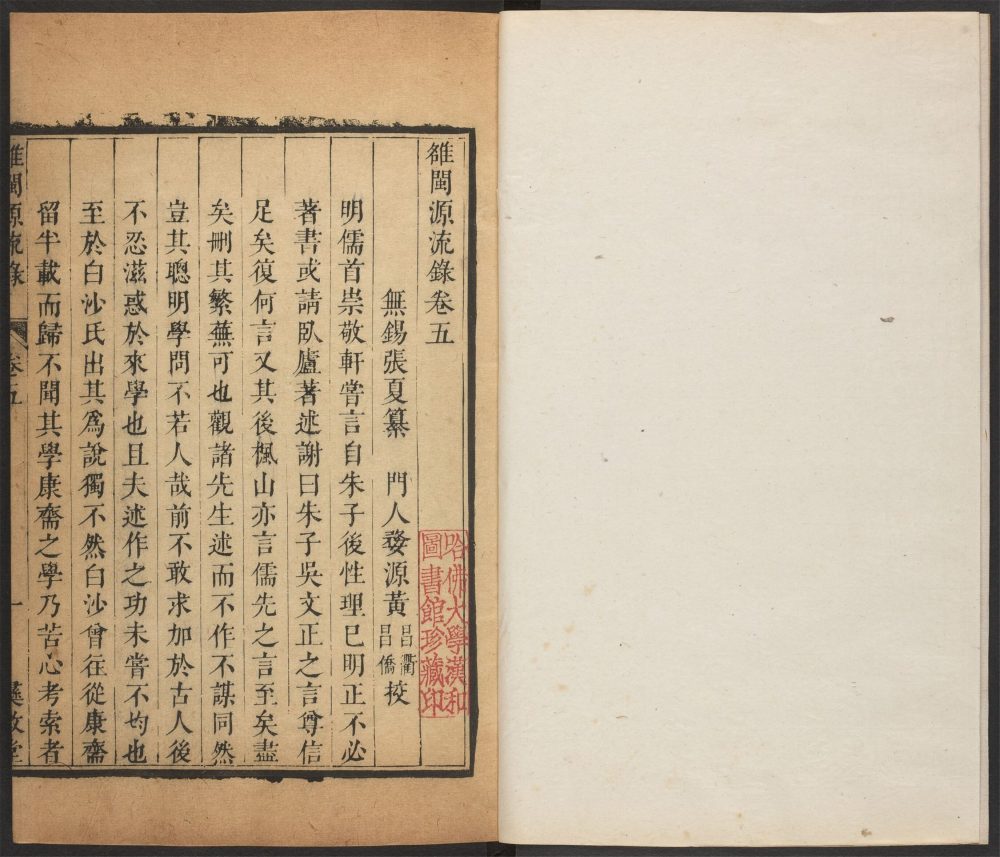 雒閩源流錄卷五
無錫張夏纂　門人婺源黃昌衢昌僑校
明儒首崇敬軒嘗言自朱子後性理已明正不必
著書或請臥廬著述謝曰朱子吳文正之言尊信
足矣復何言又其後楓山亦言儒先之言至矣盡
矣刪其繁蕪可也觀諸先生述而不作不謀同然
豈其聰明學問不若人哉前不敢求加於古人後
不忍滋惑於來學也且夫述作之功未嘗不均也
至於白沙氏出其爲說獨不然白沙曾往從康齋
留半載而歸不聞其學康齋之學乃苦心考索者
雒閩源流錄　卷五　一　彝敘堂
哈佛大學漢和
圖書館珍藏印